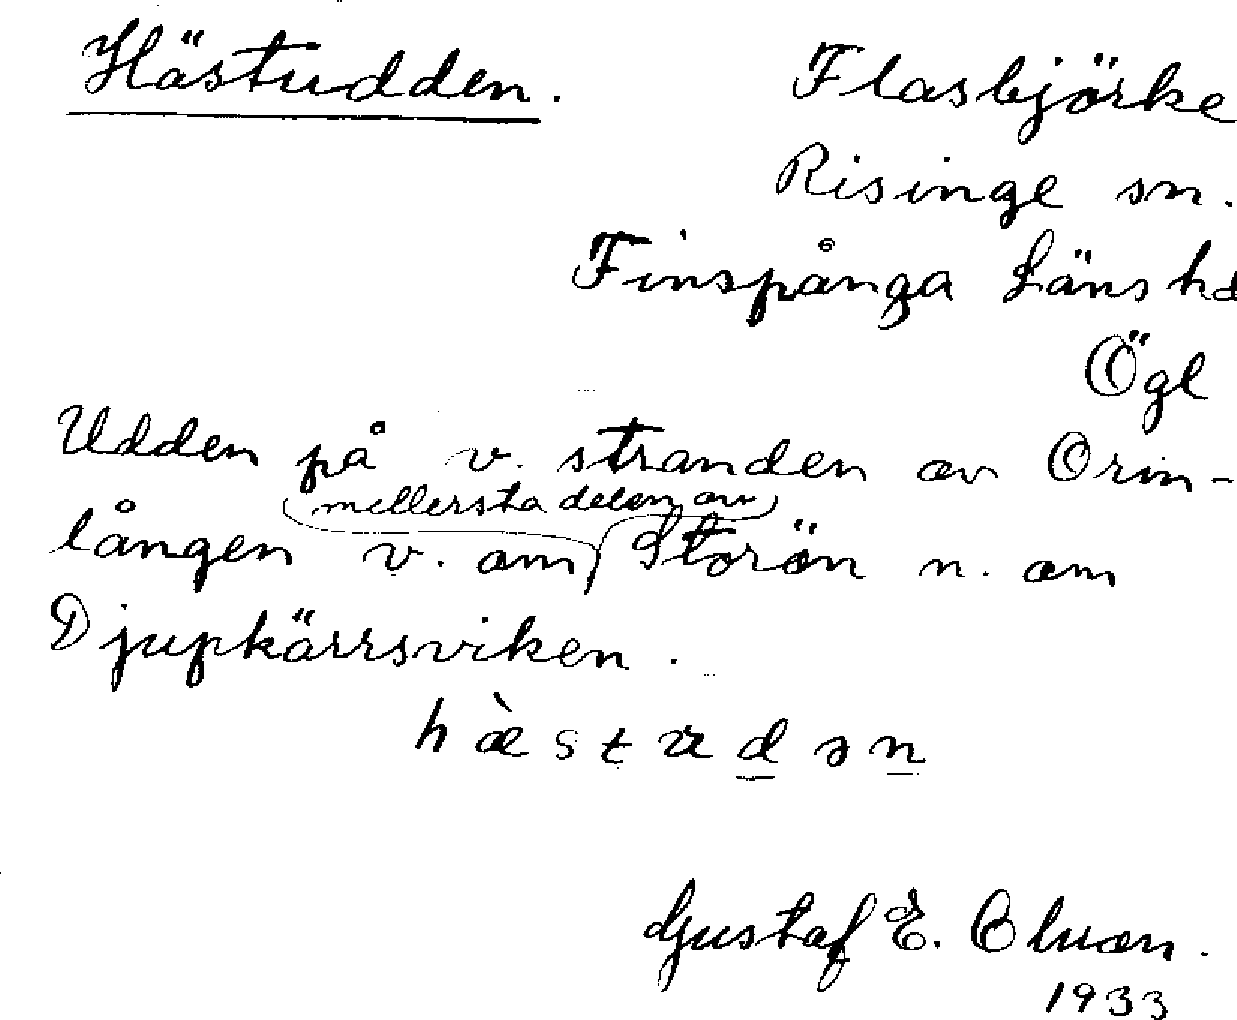 Hästudden.
Flasbjörke
Risinge sn.
Finspånga Läns hd
Ögl
Udden på v. stranden av Orm-
mellersta delen av
lången v. om Storön n. om
Djupkärrsviken.
Gustaf E.
1933